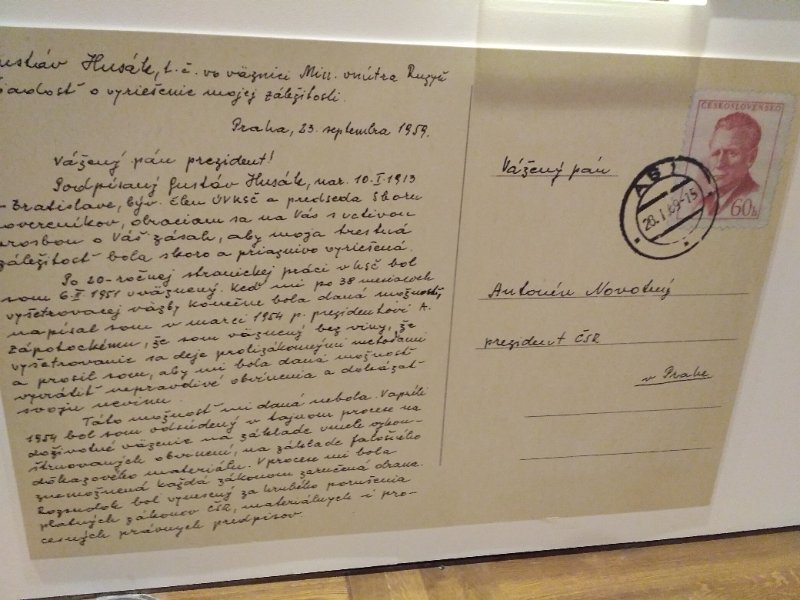 Gustáv Husák, t.č. vo väznici Min. vnútra Ruzyň
Žiadosť o vyriešenie mojej záležitosti.
Praha, 23. septembra 1959.
Vážený pán prezident!
Podpísaný Gustáv Husák, nar. 10.I.1913
Bratislave, býv. člen ÚV KSČ a predseda Sboru
povereníkov, obraciam sa na Vás s uctivou
prosbou o Váš zásah, aby moja trestná
záležitosť bola skoro a priaznivo vyriešená.
Po 20-ročnej straníckej práci v KSČ bol
som 6.II.1951 uväznený. Keď mi po 38 mesiacoch
vyšetrovacej väzby konečne bola daná možnosť,
napísal som v marci 1954 p. prezidentovi A.
Zápotockému, že som väznený bez viny, že
vyšetrovanie sa deje protizákonnými metodami
a prosil som, aby mi bola daná možnosť
vyvrátiť nepravdivé obvinenia a dokázať
svoju nevinu.
Táto možnosť mi daná nebola. V apríli
1954 bol som odsúdený v tajnom procese na
doživotné väzenie na základe umele vykon-
štruovaných obvinení, na základe falošného
dôkazového materiálu. V procese mi bola
znemožnená každá zákonom zaručená obrana.
Rozsudok bol vynesený za hrubého porušenia
platných zákonov ČSR, materiálnych i pro-
cesných právnych predpisov.
Vážený pán
Antonín Novotný
prezident ČSR
v Prahe
ČESKOSLOVENSKO
60h
28.1.69-15